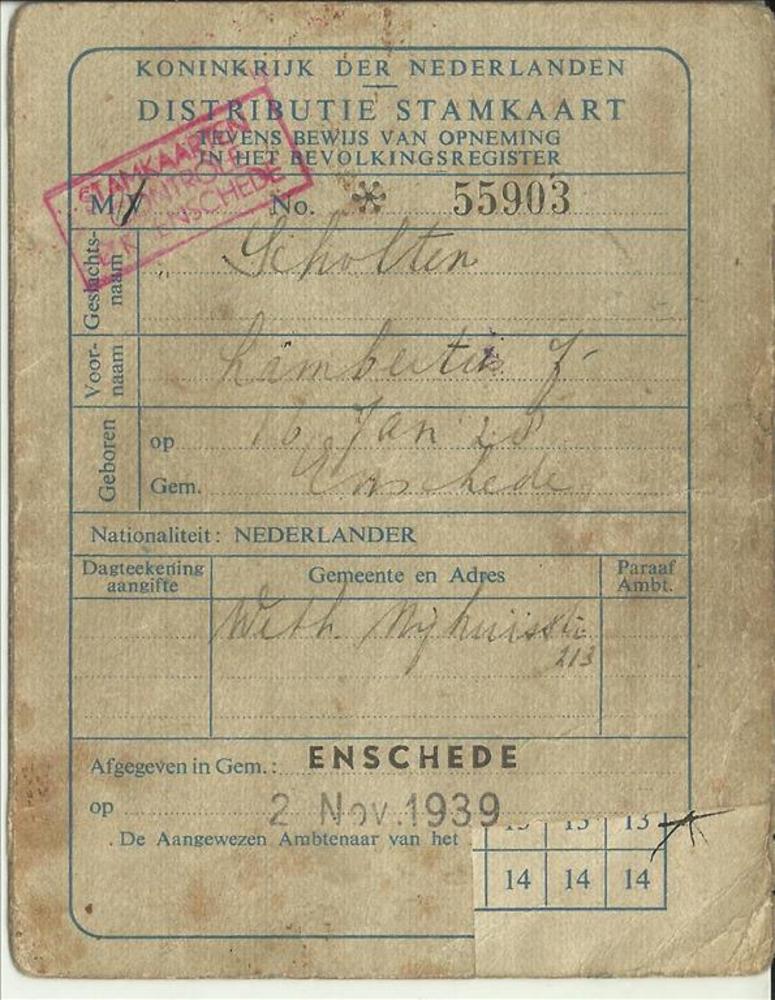 KONINKRIJK DER NEDERLANDEN
DISTRIBUTIE STAMKAART
TEVENS BEWIJS VAN OPNEMING
IN HET BEVOLKINGSREGISTER
STAMKAARTEN
CONTROLE
ENSCHEDE
M/ No. * 55903
Geslachts-
naam
Scholten
Voor-
naam
Lambertus J.
Geboren
op 16 Jan '28
Gem. Enschede
Nationaliteit: NEDERLANDER
Dagteekening
aangifte
Gemeente en Adres
Paraaf
Ambt.
Weth. Nijhuisstr.
213
Afgegeven in Gem.: ENSCHEDE
op 2 Nov. 1939
De Aangewezen Ambtenaar van het
13 13 13
14 14 14